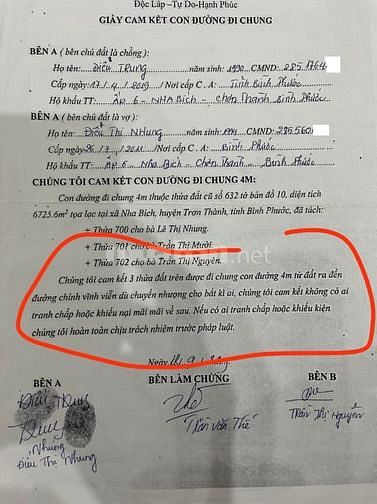 Độc Lập –Tự Do-Hạnh Phúc
GIẤY CAM KẾT CON ĐƯỜNG ĐI CHUNG
BÊN A ( bên chủ đất là chồng) :
Họ tên: Điểu Trung năm sinh: 1990 CMND: 285 1764
Cấp ngày: 17/4/2019 Nơi cấp C . A: Tỉnh Bình Phước
Hộ khẩu TT: Ấp 6 - NHA Bích - Chơn Thành Bình Phước
BÊN A ( bên chủ đất là vợ) :
Họ tên: Điểu Thị Nhung năm sinh: 1994 CMND: 285 560
Cấp ngày 26/7/2011 Nơi cấp C . A: Bình Phước
Hộ khẩu TT: Ấp 6 - Nha Bích - Chơn Thành - Bình Phước
CHÚNG TÔI CAM KẾT CON ĐƯỜNG ĐI CHUNG 4M:
Con đường đi chung 4m thuộc thửa đất cũ số 632 tờ bản đồ 10, diện tích
6725.6m² tọa lạc tại xã Nha Bích, huyện Trơn Thành, tỉnh Bình Phước, đã tách:
+ Thửa 700 cho bà Lê Thị Nhung.
+ Thửa 701 cho bà Trần Thị Mười.
+ Thửa 702 cho bà Trần Thị Nguyên.
Chúng tôi cam kết 3 thửa đất trên được đi chung con đường 4m từ đất ra đến
đường chính vĩnh viễn dù chuyển nhượng cho bất kì ai, chúng tôi cam kết không có ai
tranh chấp hoặc khiếu nại mãi mãi về sau. Nếu có ai tranh chấp hoặc khiếu kiện
chúng tôi hoàn toàn chịu trách nhiệm trước pháp luật.
BÊN A BÊN LÀM CHỨNG BÊN B
Điểu Trung
Trung
Nhung Trần Văn Thế Trần Thị Nguyên
Điểu Thị Nhung